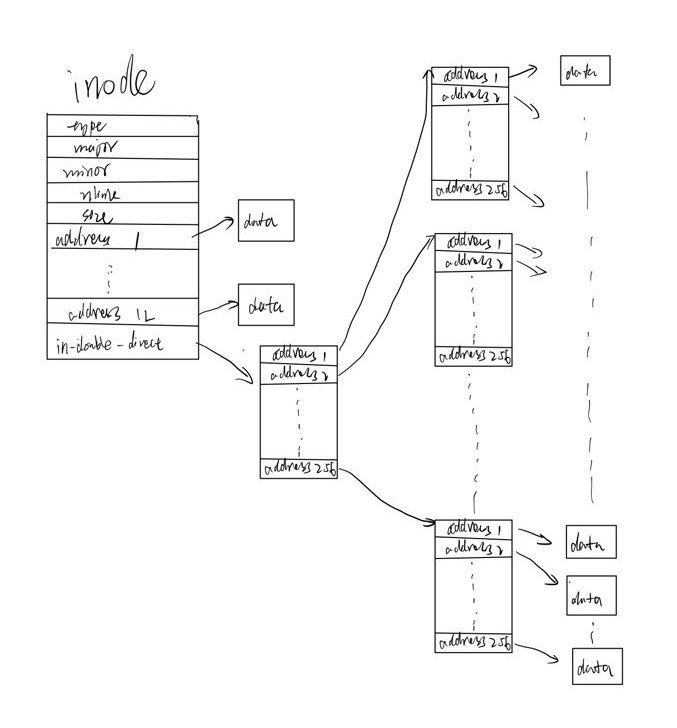 inode
type
major
minor
nlink
size
address 1
data
address 12
data
in-double-direct
address 1
address 2
address 256
address 1
address 2
address 256
data
address 1
address 2
address 256
address 1
address 2
address 256
data
data
data